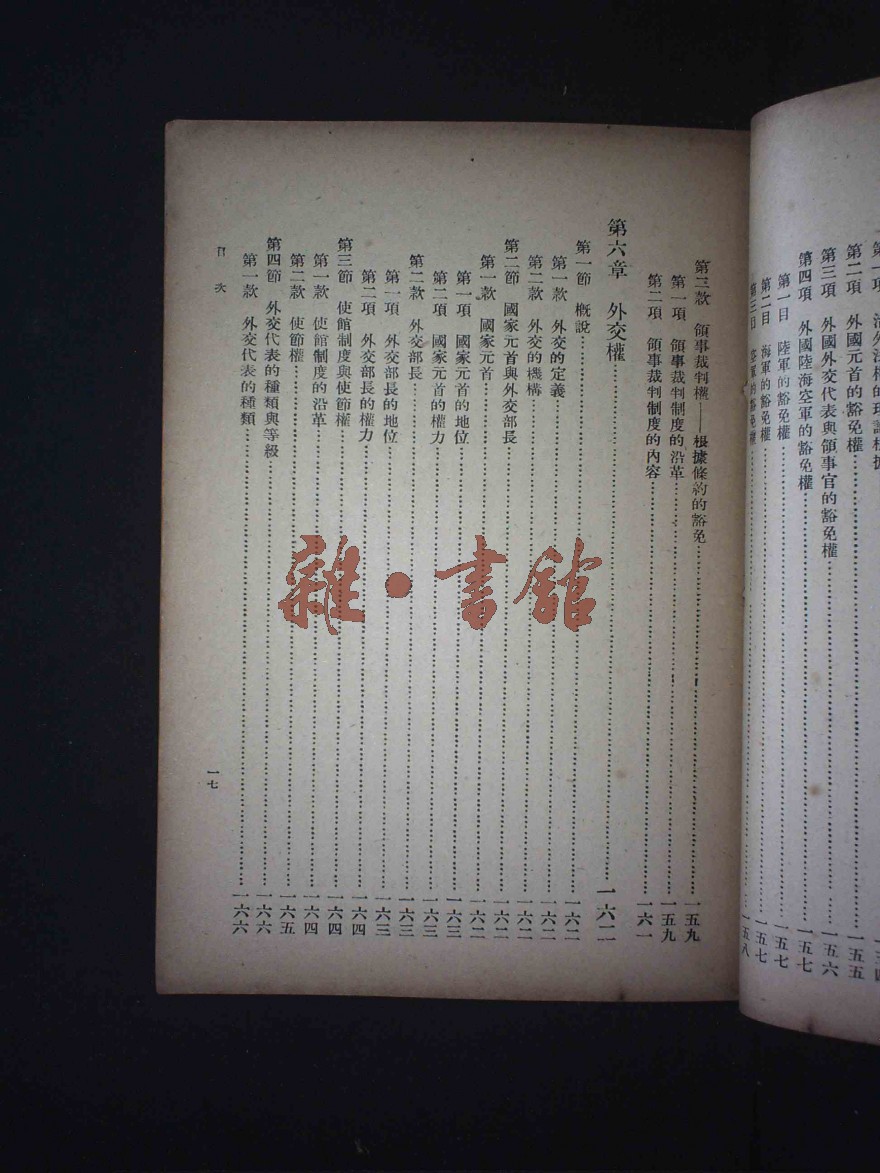 第二項　外國元首的豁免權……一五五
第三項　外國外交代表與領事官的豁免權……一五六
第四項　外國陸海空軍的豁免權……一五七
第一目　陸軍的豁免權……一五七
第二目　海軍的豁免權……一五七
第三目　空軍的豁免權……一五八
第三款　領事裁判權——根據條約的豁免……一五九
第一項　領事裁判制度的沿革……一五九
第二項　領事裁判制度的內容……一六一
第六章　外交權……一六二
第一節　概說……一六二
第一款　外交的定義……一六二
第二款　外交的機構……一六二
第二節　國家元首與外交部長……一六二
第一款　國家元首……一六二
第一項　國家元首的地位……一六三
第二項　國家元首的權力……一六三
第二款　外交部長……一六三
第一項　外交部長的地位……一六三
第二項　外交部長的權力……一六四
第三節　使館制度與使節權……一六四
第一款　使館制度的沿革……一六四
第二款　使節權……一六五
第四節　外交代表的種類與等級……一六六
第一款　外交代表的種類……一六六
目次
一七
雜·書館